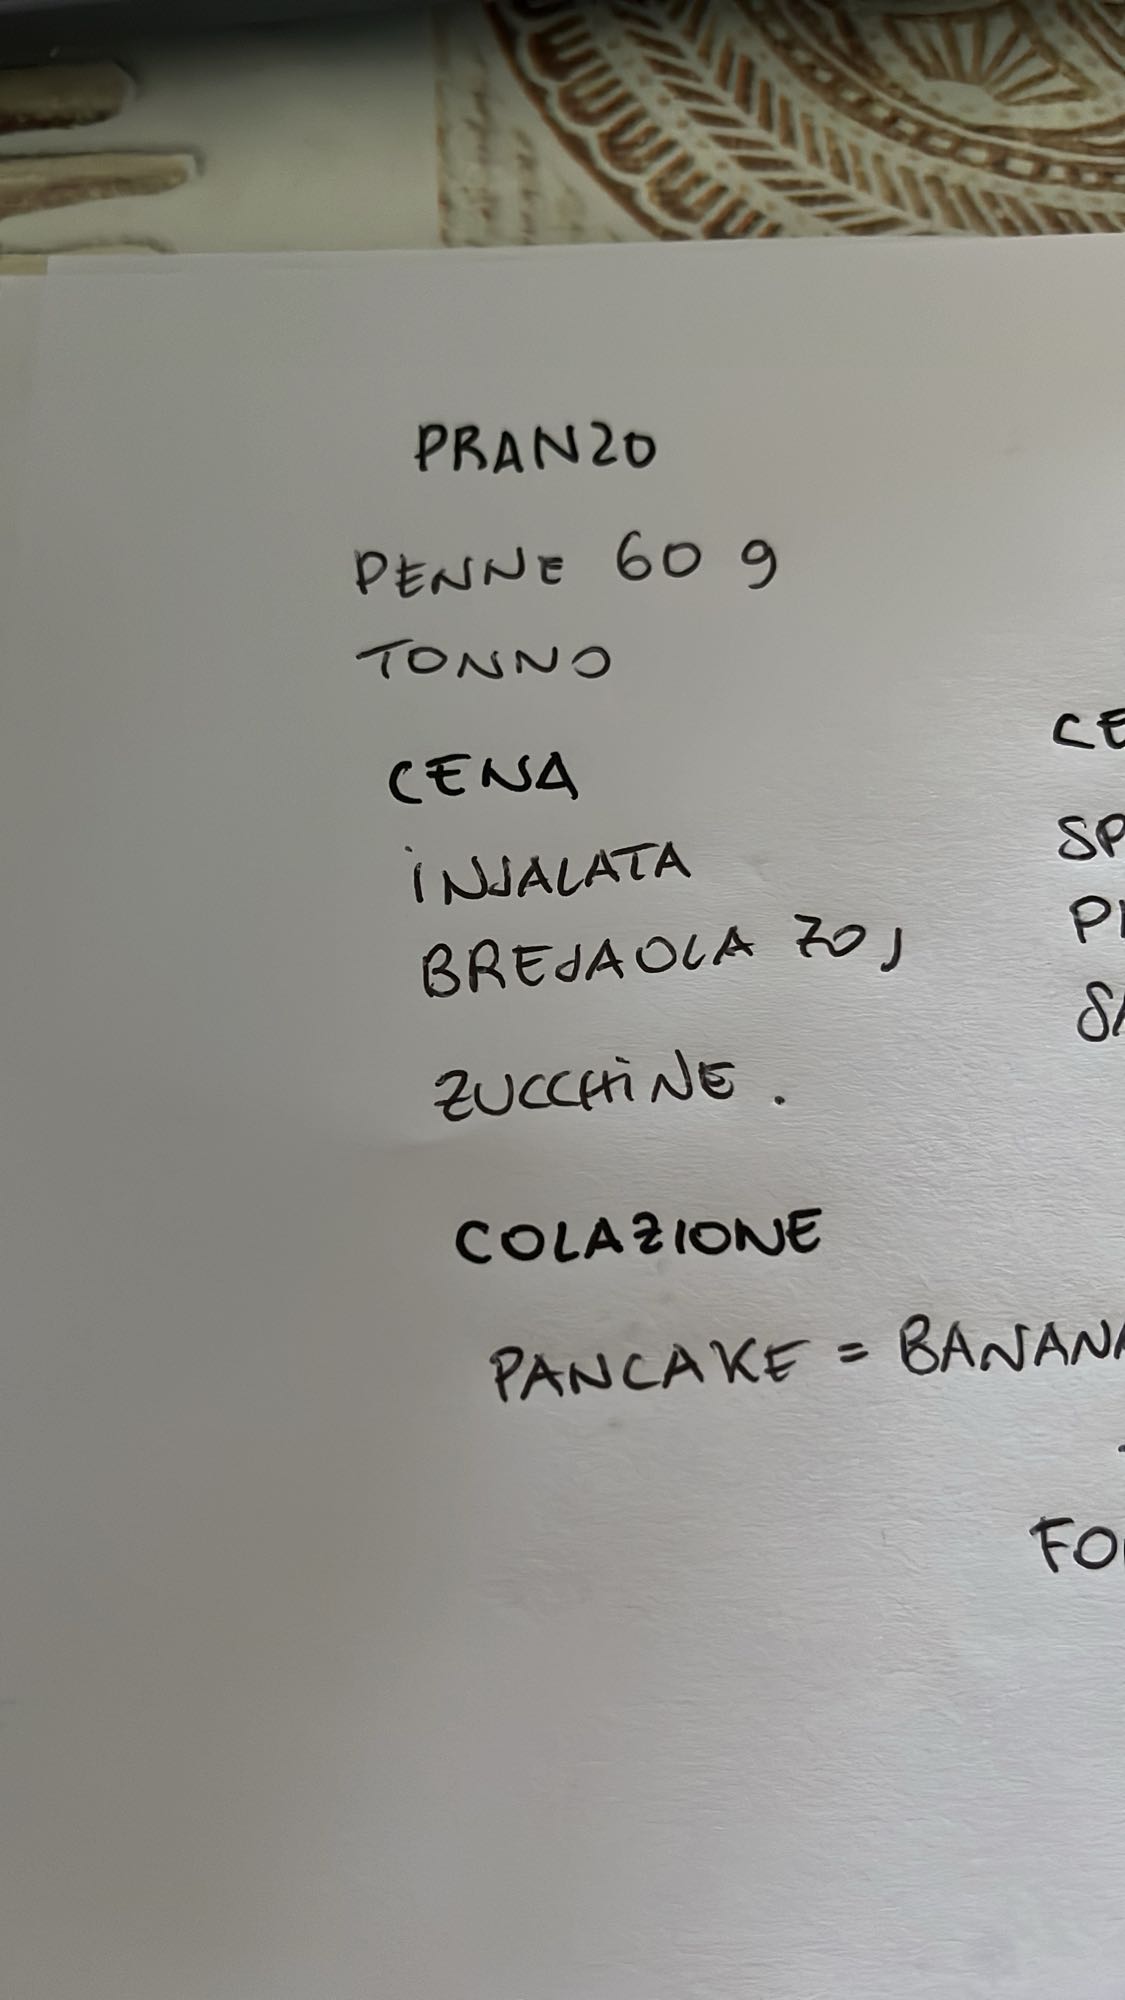 PRANZO
PENNE 60 g
TONNO
CENA
INSALATA
BRESAOLA 70 g
ZUCCHINE.
COLAZIONE
PANCAKE = BANANA